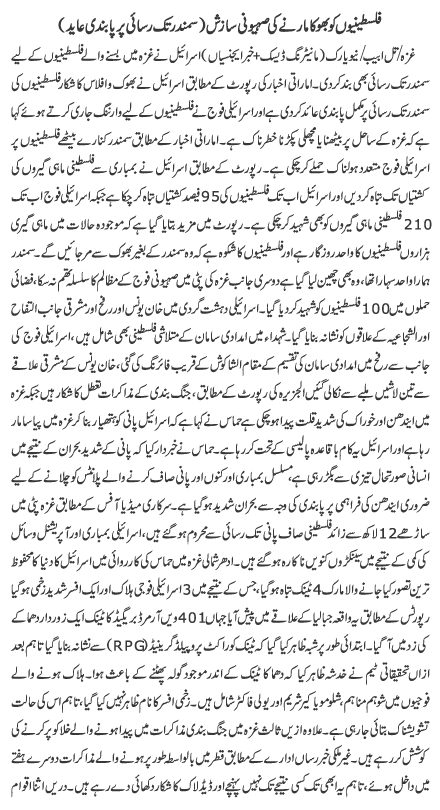 فلسطینیوں کو بھوکا مارنے کی صہیونی سازش (سمندر تک رسائی پر پابندی عاید)
غزہ/تل ابیب/نیویارک (مانیٹرنگ ڈیسک+خبر ایجنسیاں) اسرائیل نے غزہ میں بسنے والے فلسطینیوں کے لیے
سمندر تک رسائی بھی بند کردی۔ اماراتی اخبار کی رپورٹ کے مطابق اسرائیل نے بھوک و افلاس کا شکار فلسطینیوں کی
سمندر تک رسائی پر مکمل پابندی عائد کردی ہے اور اسرائیلی فوج نے فلسطینیوں کے لیے وارننگ جاری کرتے ہوئے کہا
ہے کہ غزہ کے ساحل پر بیٹھنا یا مچھلی پکڑنا خطرناک ہے۔ اماراتی اخبار کے مطابق سمندر کنارے بیٹھے فلسطینیوں پر
اسرائیلی فوج متعدد ہولناک حملے کرچکی ہے۔ رپورٹ کے مطابق اسرائیل نے بمباری سے فلسطینی ماہی گیروں کی
کشتیاں تک تباہ کردیں اور اسرائیل اب تک فلسطینیوں کی 95 فیصد کشتیاں تباہ کرچکا ہے جبکہ اسرائیلی فوج اب تک
210 فلسطینی ماہی گیروں کو بھی شہید کرچکی ہے۔ رپورٹ میں مزید بتایا گیا ہے کہ موجودہ حالات میں ماہی گیری
ہزاروں فلسطینیوں کا واحد روزگار ہے اور فلسطینیوں کا شکوہ ہے کہ وہ سمندر کے بغیر بھوک سے مرجائیں گے۔ سمندر
ہمارا واحد سہارا تھا، وہ بھی چھین لیا گیا ہے دوسری جانب غزہ کی پٹی میں صہیونی فوج کے مظالم کا سلسلہ تھم نہ سکا، فضائی
حملوں میں 100 فلسطینیوں کو شہید کردیا گیا۔ اسرائیلی دہشت گردی میں خان یونس اور رفح اور مشرقی جانب التفاح
اور الشجاعیہ کے علاقوں کو نشانہ بنایا گیا۔ شہداء میں امدادی سامان کے متلاشی فلسطینی بھی شامل ہیں، اسرائیلی فوج کی
جانب سے رفح میں امدادی سامان کی تقسیم کے مقام الشاکوش کے قریب فائرنگ کی گئی، خان یونس کے مشرقی علاقے
سے تین لاشیں ملبے سے نکالی گئیں الجزیرہ کی رپورٹ کے مطابق، جنگ بندی کے مذاکرات تعطل کا شکار ہیں جبکہ غزہ
میں ایندھن اور خوراک کی شدید قلت پیدا ہوچکی ہے حماس نے کہا ہے کہ اسرائیل پانی کو ہتھیار بنا کر غزہ میں پیاسا مار
رہا ہے اور اسرائیل یہ کام باقاعدہ پالیسی کے تحت کر رہا ہے۔ حماس نے خبردار کیا کہ پانی کے شدید بحران کے نتیجے میں
انسانی صورتحال تیزی سے بگڑ رہی ہے، مسلسل بمباری اور کنوں اور پانی صاف کرنے والے پلانٹس کو چلانے کے لیے
ضروری ایندھن کی فراہمی پر پابندی کی وجہ سے بحران شدید ہوگیا ہے۔ سرکاری میڈیا آفس کے مطابق غزہ پٹی میں
ساڑھے 12 لاکھ سے زائد فلسطینی صاف پانی تک رسائی سے محروم ہوگئے ہیں، اسرائیلی بمباری اور آپریشنل وسائل
کی کمی کے نتیجے میں سینکڑوں کنویں ناکارہ ہوگئے ہیں۔ ادھر شمالی غزہ میں حماس کی کارروائی میں اسرائیل کا دنیا کا محفوظ
ترین تصور کیا جانے والا مارک 4 ٹینک تباہ ہوگیا، جس کے نتیجے میں 3 اسرائیلی فوجی ہلاک اور ایک افسر شدید زخمی ہوگیا
رپورٹس کے مطابق یہ واقعہ جبالیا کے علاقے میں پیش آیا جہاں 401 ویں آرمرڈ بریگیڈ کا ٹینک ایک زوردار دھماکے
کی زد میں آگیا۔ ابتدائی طور پر شبہ ظاہر کیا گیا کہ ٹینک کو راکٹ پروپیلڈ گرینیڈ (RPG) سے نشانہ بنایا گیا تاہم بعد
ازاں تحقیقاتی ٹیم نے خدشہ ظاہر کیا کہ دھماکا ٹینک کے اندر موجود گولہ پھٹنے کے باعث ہوا۔ ہلاک ہونے والے
فوجیوں میں شوہم مناہم، شلومو یاکیر شریم اور یولی فاکٹر شامل ہیں۔ زخمی افسر کا نام ظاہر نہیں کیا گیا، تاہم اس کی حالت
تشویشناک بتائی جارہی ہے۔ علاوہ ازیں ثالث غزہ میں جنگ بندی مذاکرات میں پیدا ہونے والے خلا کو پر کرنے کی
کوشش کررہے ہیں۔ غیر ملکی خبر رساں ادارے کے مطابق قطر میں بالواسطہ طور پر ہونے والے مذاکرات دوسرے ہفتے
میں داخل ہوئے، تاہم یہ ابھی تک کسی نتیجے تک نہیں پہنچے اور ڈیڈ لاک کا شکار دکھائی دے رہے ہیں۔ دریں اثنا اقوام